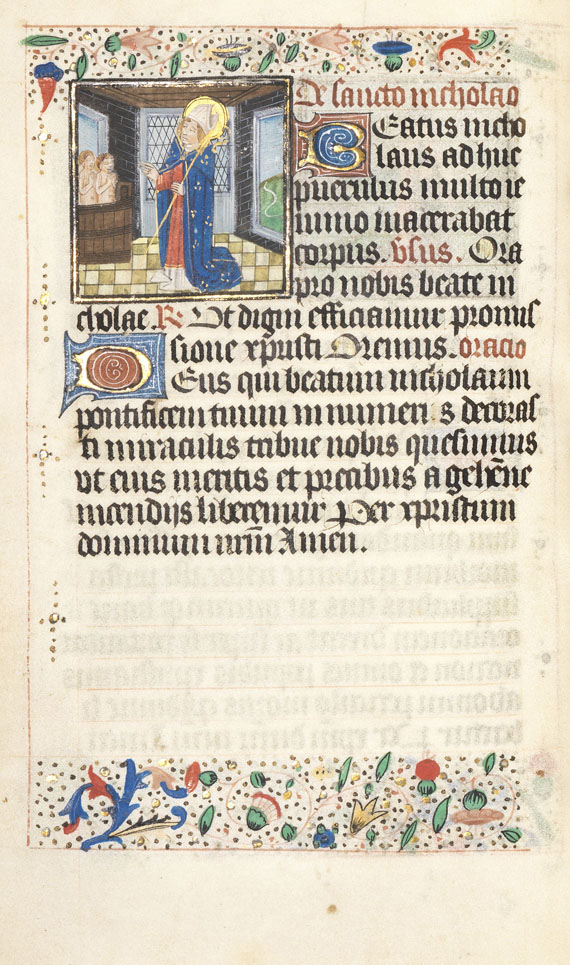 De sancto nicholao
Eatus nicho
laus ad huc
puerulus multo ie
iunio macerabat
corpus. vsus. Ora
pro nobis beate ni
cholae. R. Vt digni efficiamur promis
sione xpristi Oremus. oracio
Deus qui beatum nicholaum
pontificem tuum innumeri s decoras
ti miraculis tribue nobis quesumus
vt eius meritis et precibus a gehēne
incendijs liberemur Per xpristum
dominum nrm̄ Amen.